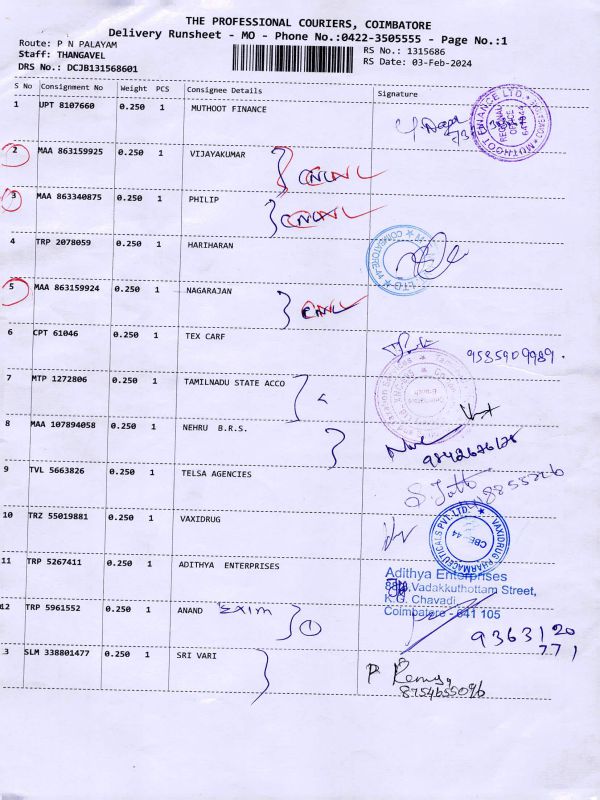 THE PROFESSIONAL COURIERS, COIMBATORE
Delivery Runsheet - MO - Phone No.:0422-3505555 - Page No.:1
Route: P N PALAYAM
Staff: THANGAVEL
DRS No.: DCJB131568601
RS No.: 1315686
RS Date: 03-Feb-2024
S No Consignment No Weight PCS Consignee Details Signature
1 UPT 8107660 0.250 1 MUTHOOT FINANCE
2 MAA 863159925 0.250 1 VIJAYAKUMAR
3 MAA 863340875 0.250 1 PHILIP
4 TRP 2078059 0.250 1 HARIHARAN
5 MAA 863159924 0.250 1 NAGARAJAN
6 CPT 61046 0.250 1 TEX CARF 9585909989.
7 MTP 1272806 0.250 1 TAMILNADU STATE ACCO
8 MAA 107894058 0.250 1 NEHRU B.R.S.
9 TVL 5663826 0.250 1 TELSA AGENCIES
10 TRZ 55019881 0.250 1 VAXIDRUG
VAXIDRUG PHARMACEUTICALS PVT. LTD.
CBE-44
11 TRP 5267411 0.250 1 ADITHYA ENTERPRISES
Adithya Enterprises
Vadakkuthottam Street,
K.G. Chavadi,
Coimbatore - 641 105
12 TRP 5961552 0.250 1 ANAND EXIM 1
9363120
771
3 SLM 338801477 0.250 1 SRI VARI
8754655096